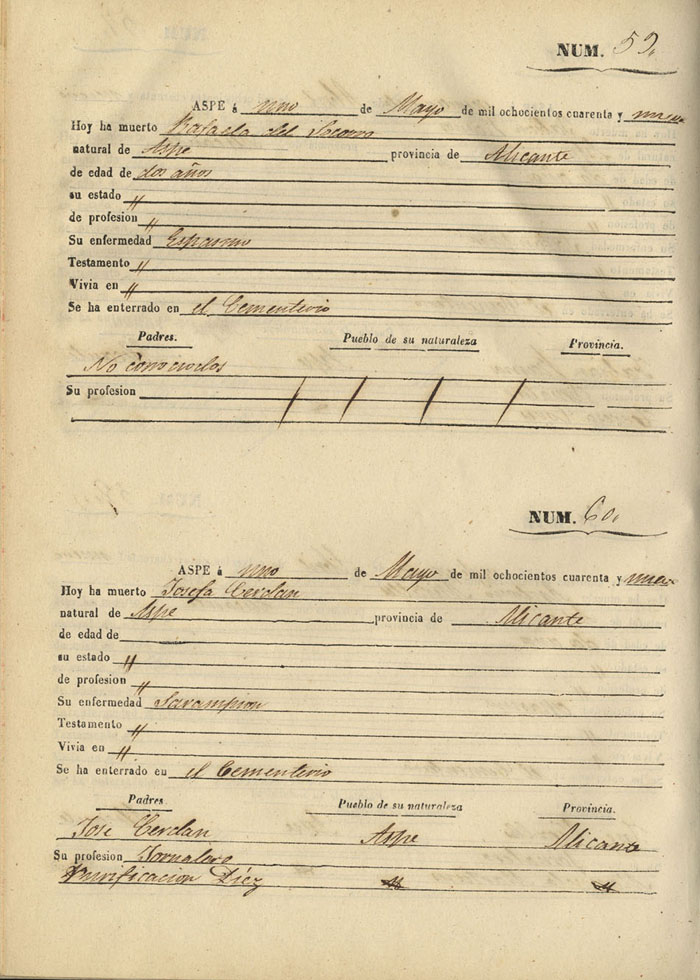 NUM. 59.
ASPE á uno de Mayo de mil ochocientos cuarenta y nueve
Hoy ha muerto Rafaela del Socorro
natural de Aspe provincia de Alicante
de edad de dos años
su estado "
de profesion "
Su enfermedad Espasmo
Testamento "
Vivia en "
Se ha enterrado en el Cementerio
Padres. Pueblo de su naturaleza Provincia.
No conocidos
Su profesion
NUM. 60.
ASPE á uno de Mayo de mil ochocientos cuarenta y nueve
Hoy ha muerto Josefa Cerdan
natural de Aspe provincia de Alicante
de edad de
su estado "
de profesion "
Su enfermedad Sarampion
Testamento "
Vivia en "
Se ha enterrado en el Cementerio
Padres. Pueblo de su naturaleza Provincia.
Jose Cerdan Aspe Alicante
Su profesion Jornalero
Purificacion Diez " "